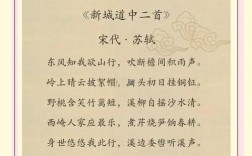 《新城道中二首》
宋代·苏轼
东风知我欲山行，吹断檐间积雨声。
岭上晴云披絮帽，树头初日挂铜钲。
野桃含笑竹篱短，溪柳自摇沙水清。
西崦人家应最乐，煮芹烧笋饷春耕。
身世悠悠我此行，溪边委辔听溪声。